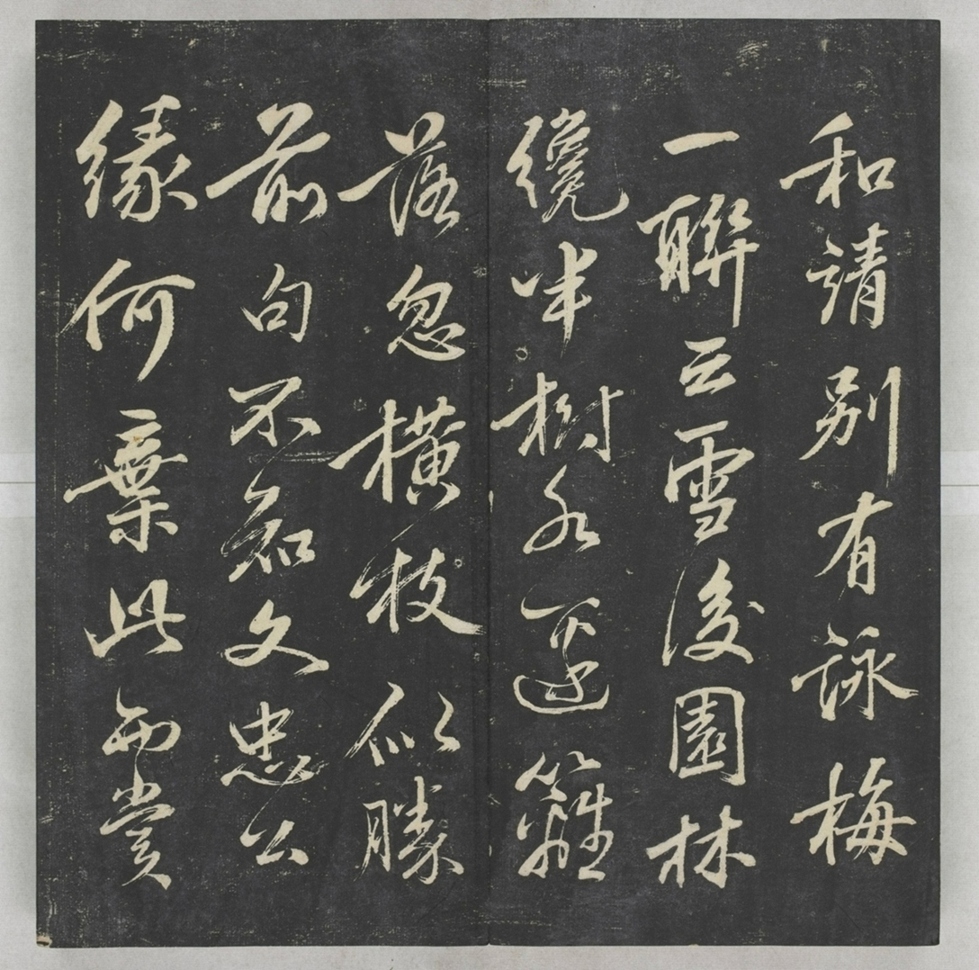 和靖别有詠梅
一聯云雪後園林
纔半樹水邊籬
落忽橫枝似勝
前句不知文忠公
緣何棄此而賞